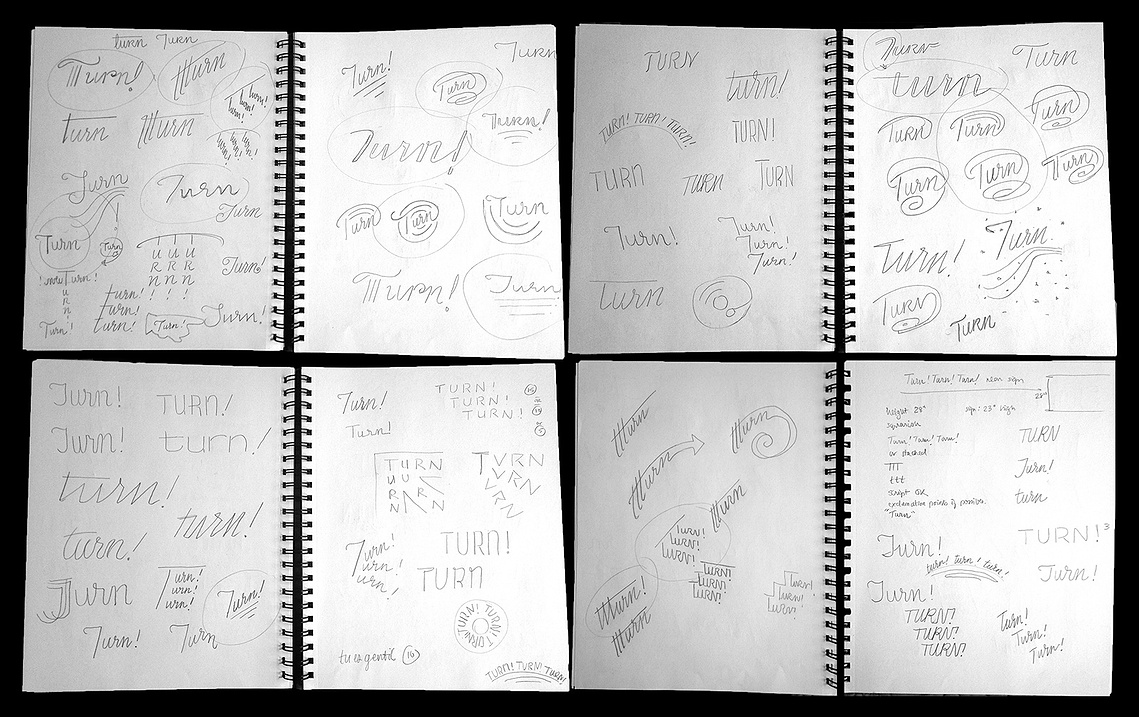 turn Turn
Tturn!
tttturn
turn!
turn!
turn!
turn
ttturn
Turn
Turn
Turn
Turn
Turn
Turn!
turn!
turn!
turn!
Turn!
Turn!
Turn!
Turn!
Turn
Turn
Turn!
Turn!
Turn
Turn
Turn
Turn!
Turn
TURN
turn!
TURN! TURN! TURN!
TURN!
TURN
TURN
TURN
Turn!
Turn!
Turn!
Turn!
turn
Turn
Turn
turn
Turn
Turn
Turn
Turn
Turn
Turn
Turn!
Turn
Turn
Turn
Turn!
TURN!
Turn!
turn!
turn!
turn!
turn!
Turn
Turn!
urn!
urn!
Turn!
Turn!
Turn
Turn!
TURN!
TURN!
TURN!
Turn!
TURN
U U
R R
N N
TURN
URN
Turn!
urn!
urn!
TURN!
TURN
TURN! TURN! TURN!
tu es gentil 10
TURN! TURN! TURN!
tttturn
tttturn
tttturn
tttturn
Turn!
Turn!
Turn!
TURN!
TURN!
TURN!
Turn!
Turn!
Turn!
ttturn!
ttturn
Turn! Turn! Turn! neon sign
28"
height 28"
sign: 23" high
squarish
Turn! Turn! Turn!
or stacked
TTT
ttt
script OK
exclamation points if possible.
"Turn"
TURN
Turn!
turn
TURN!³
Turn!
turn! turn! turn!
Turn!
Turn!
TURN!
TURN!
TURN!
Turn!
Turn!
Turn!